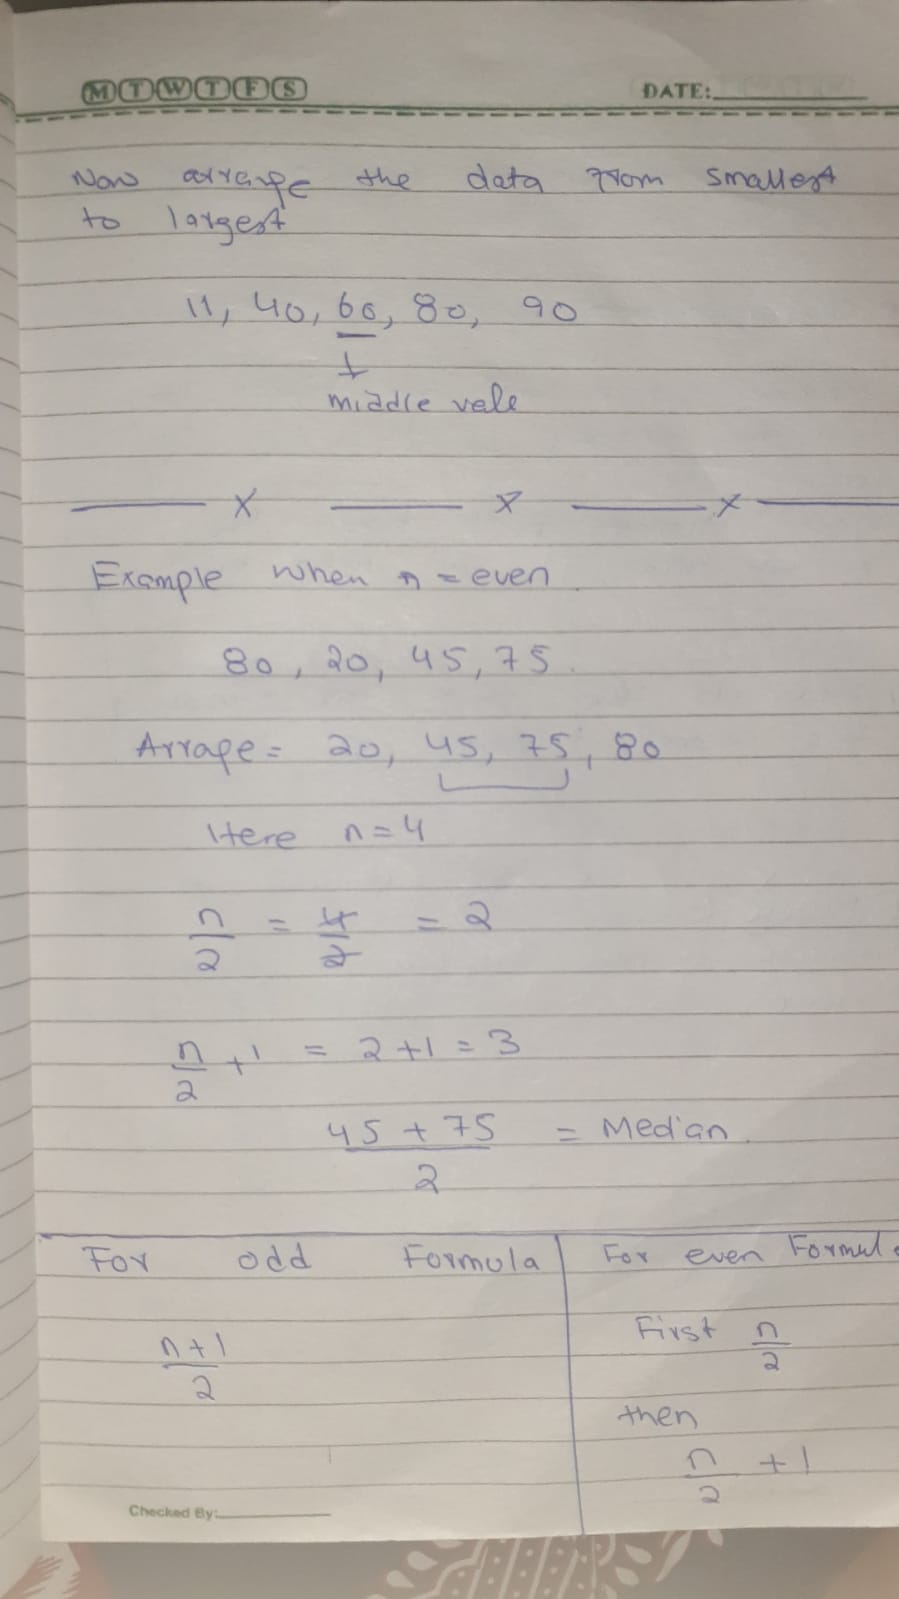 M T W T F S
DATE:
Now arrange the data from smallest
to largest
11, 40, 60, 80, 90
middle vale
x x x
Example when n = even
80, 20, 45, 75.
Arrage = 20, 45, 75, 80
Here n=4
n/2 = 4/2 = 2
n/2 +1 = 2+1 = 3
45 + 75 / 2 = Median.
For odd Formula
n+1 / 2
For even Formul
First n/2
then
n/2 + 1
Checked By: